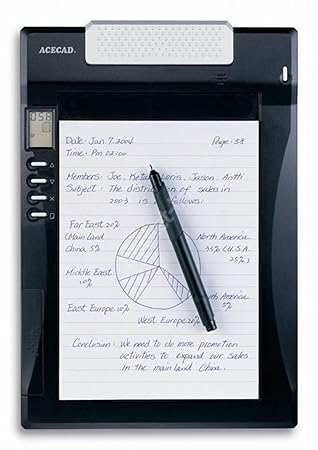 ACECAD.
058
Date: Jan. 7. 2004 Page: 58
Time: Pm 02:00
Members: Joe, Jason. Antti
Subject: The of sales in
2003 is follows:
Far East 20%
(Main land
China 5%
North America
35% (U.S.A
25%)
Middle East
10%
East Europe 10%
West Europe 20%
5%
Conclusion: We need to do more promotion
activities to expand our sales
in the main land China.